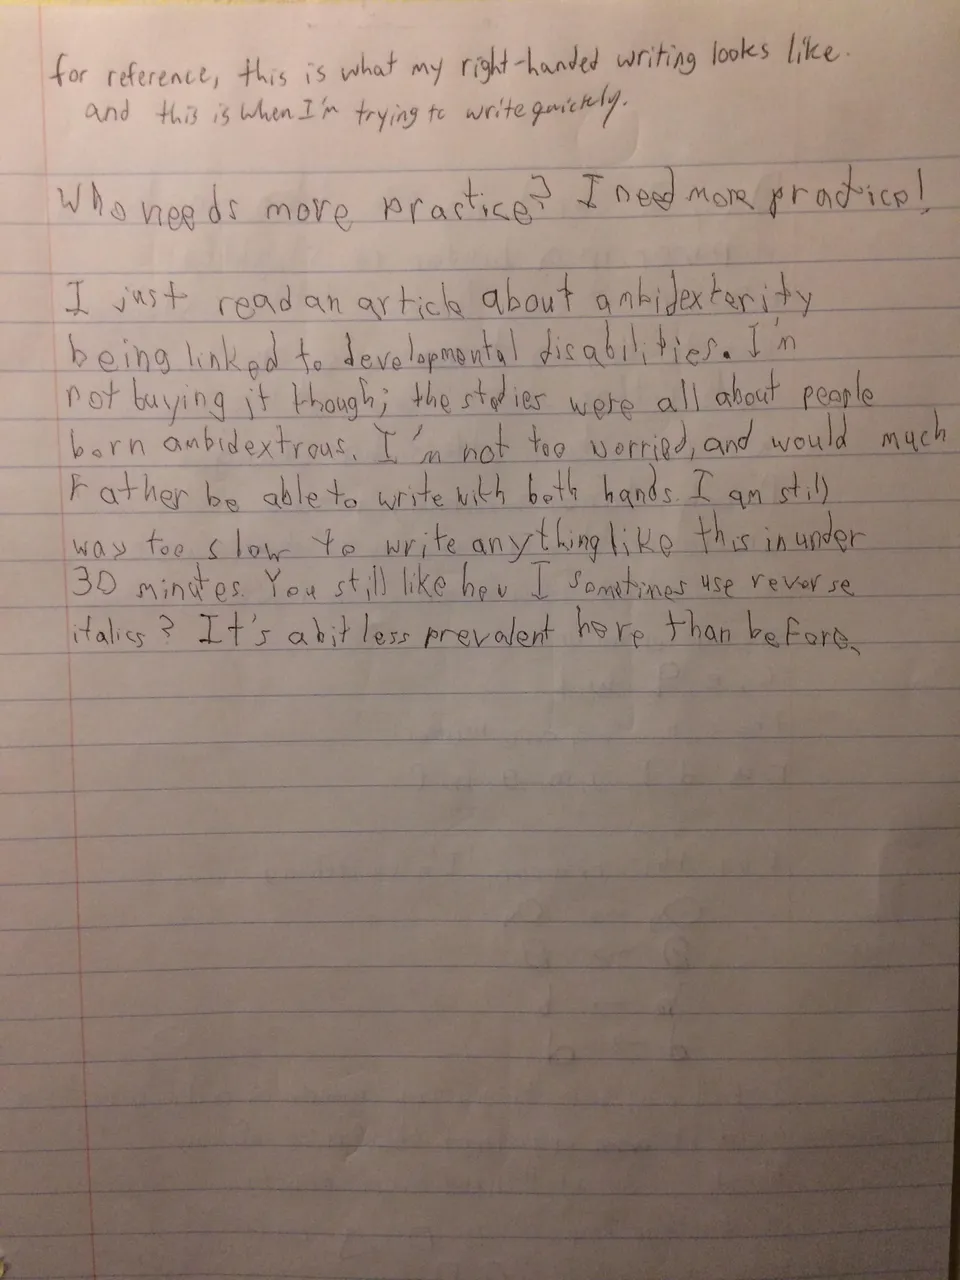 for reference, this is what my right-handed writing looks like.
and this is when I'm trying to write quickly.
Who needs more practice? I need more practice!
I just read an article about ambidexterity
being linked to developmental disabilities. I'm
not buying it though; the studies were all about people
born ambidextrous. I'm not too worried, and would much
rather be able to write with both hands. I am still
way too slow to write anything like this in under
30 minutes. You still like how I sometimes use reverse
italics? It's a bit less prevalent here than before.